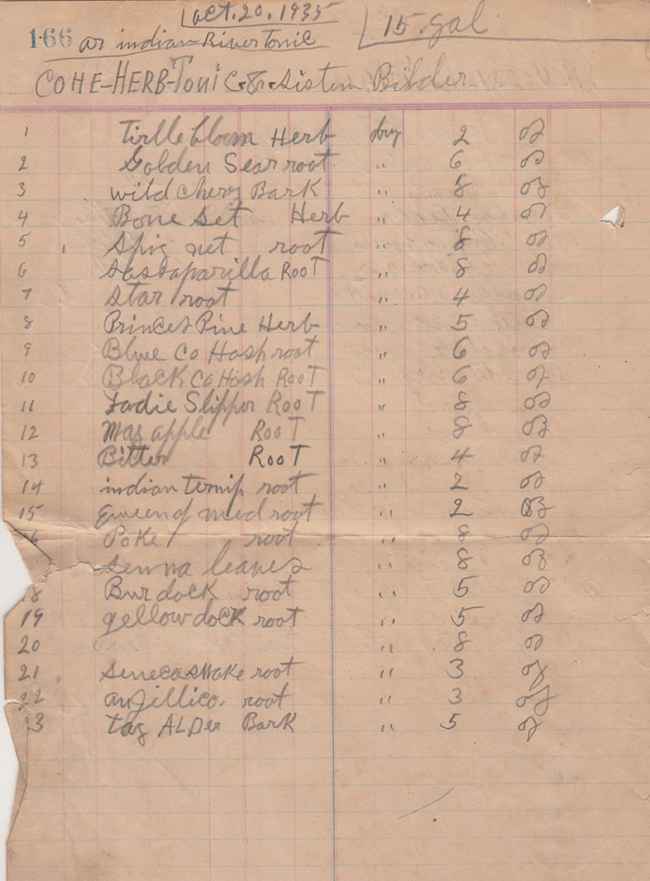 oct. 20. 1935
166 or indian-River tonic 15. gal
COHE-HERB-Tonic & Sistem Bilder
1 Tirtle bloom Herb dry 2 oz
2 Golden Sear root " 6 oz
3 wild chery Bark " 8 oz
4 Bone set Herb " 4 oz
5 Spig net root " 8 oz
6 Sassaparilla Root " 8 oz
7 star root " 4 oz
8 Princes Pine Herb " 5 oz
9 Blue CoHosh root " 6 oz
10 Black CoHosh Root " 6 oz
11 Ladie Slipper Root " 8 oz
12 May apple Root " 8 oz
13 Bitter Root " 4 oz
14 indian ternip root " 2 oz
15 Queen of med root " 2 oz
6 Poke root " 8 oz
Senna leaves " 8 oz
18 Burdock root " 5 oz
19 yellow dock root " 5 oz
20 " 8 oz
21 Seneca snake root " 3 oz
22 anjillico. root " 3 oz
23 tag ALDer Bark " 5 oz